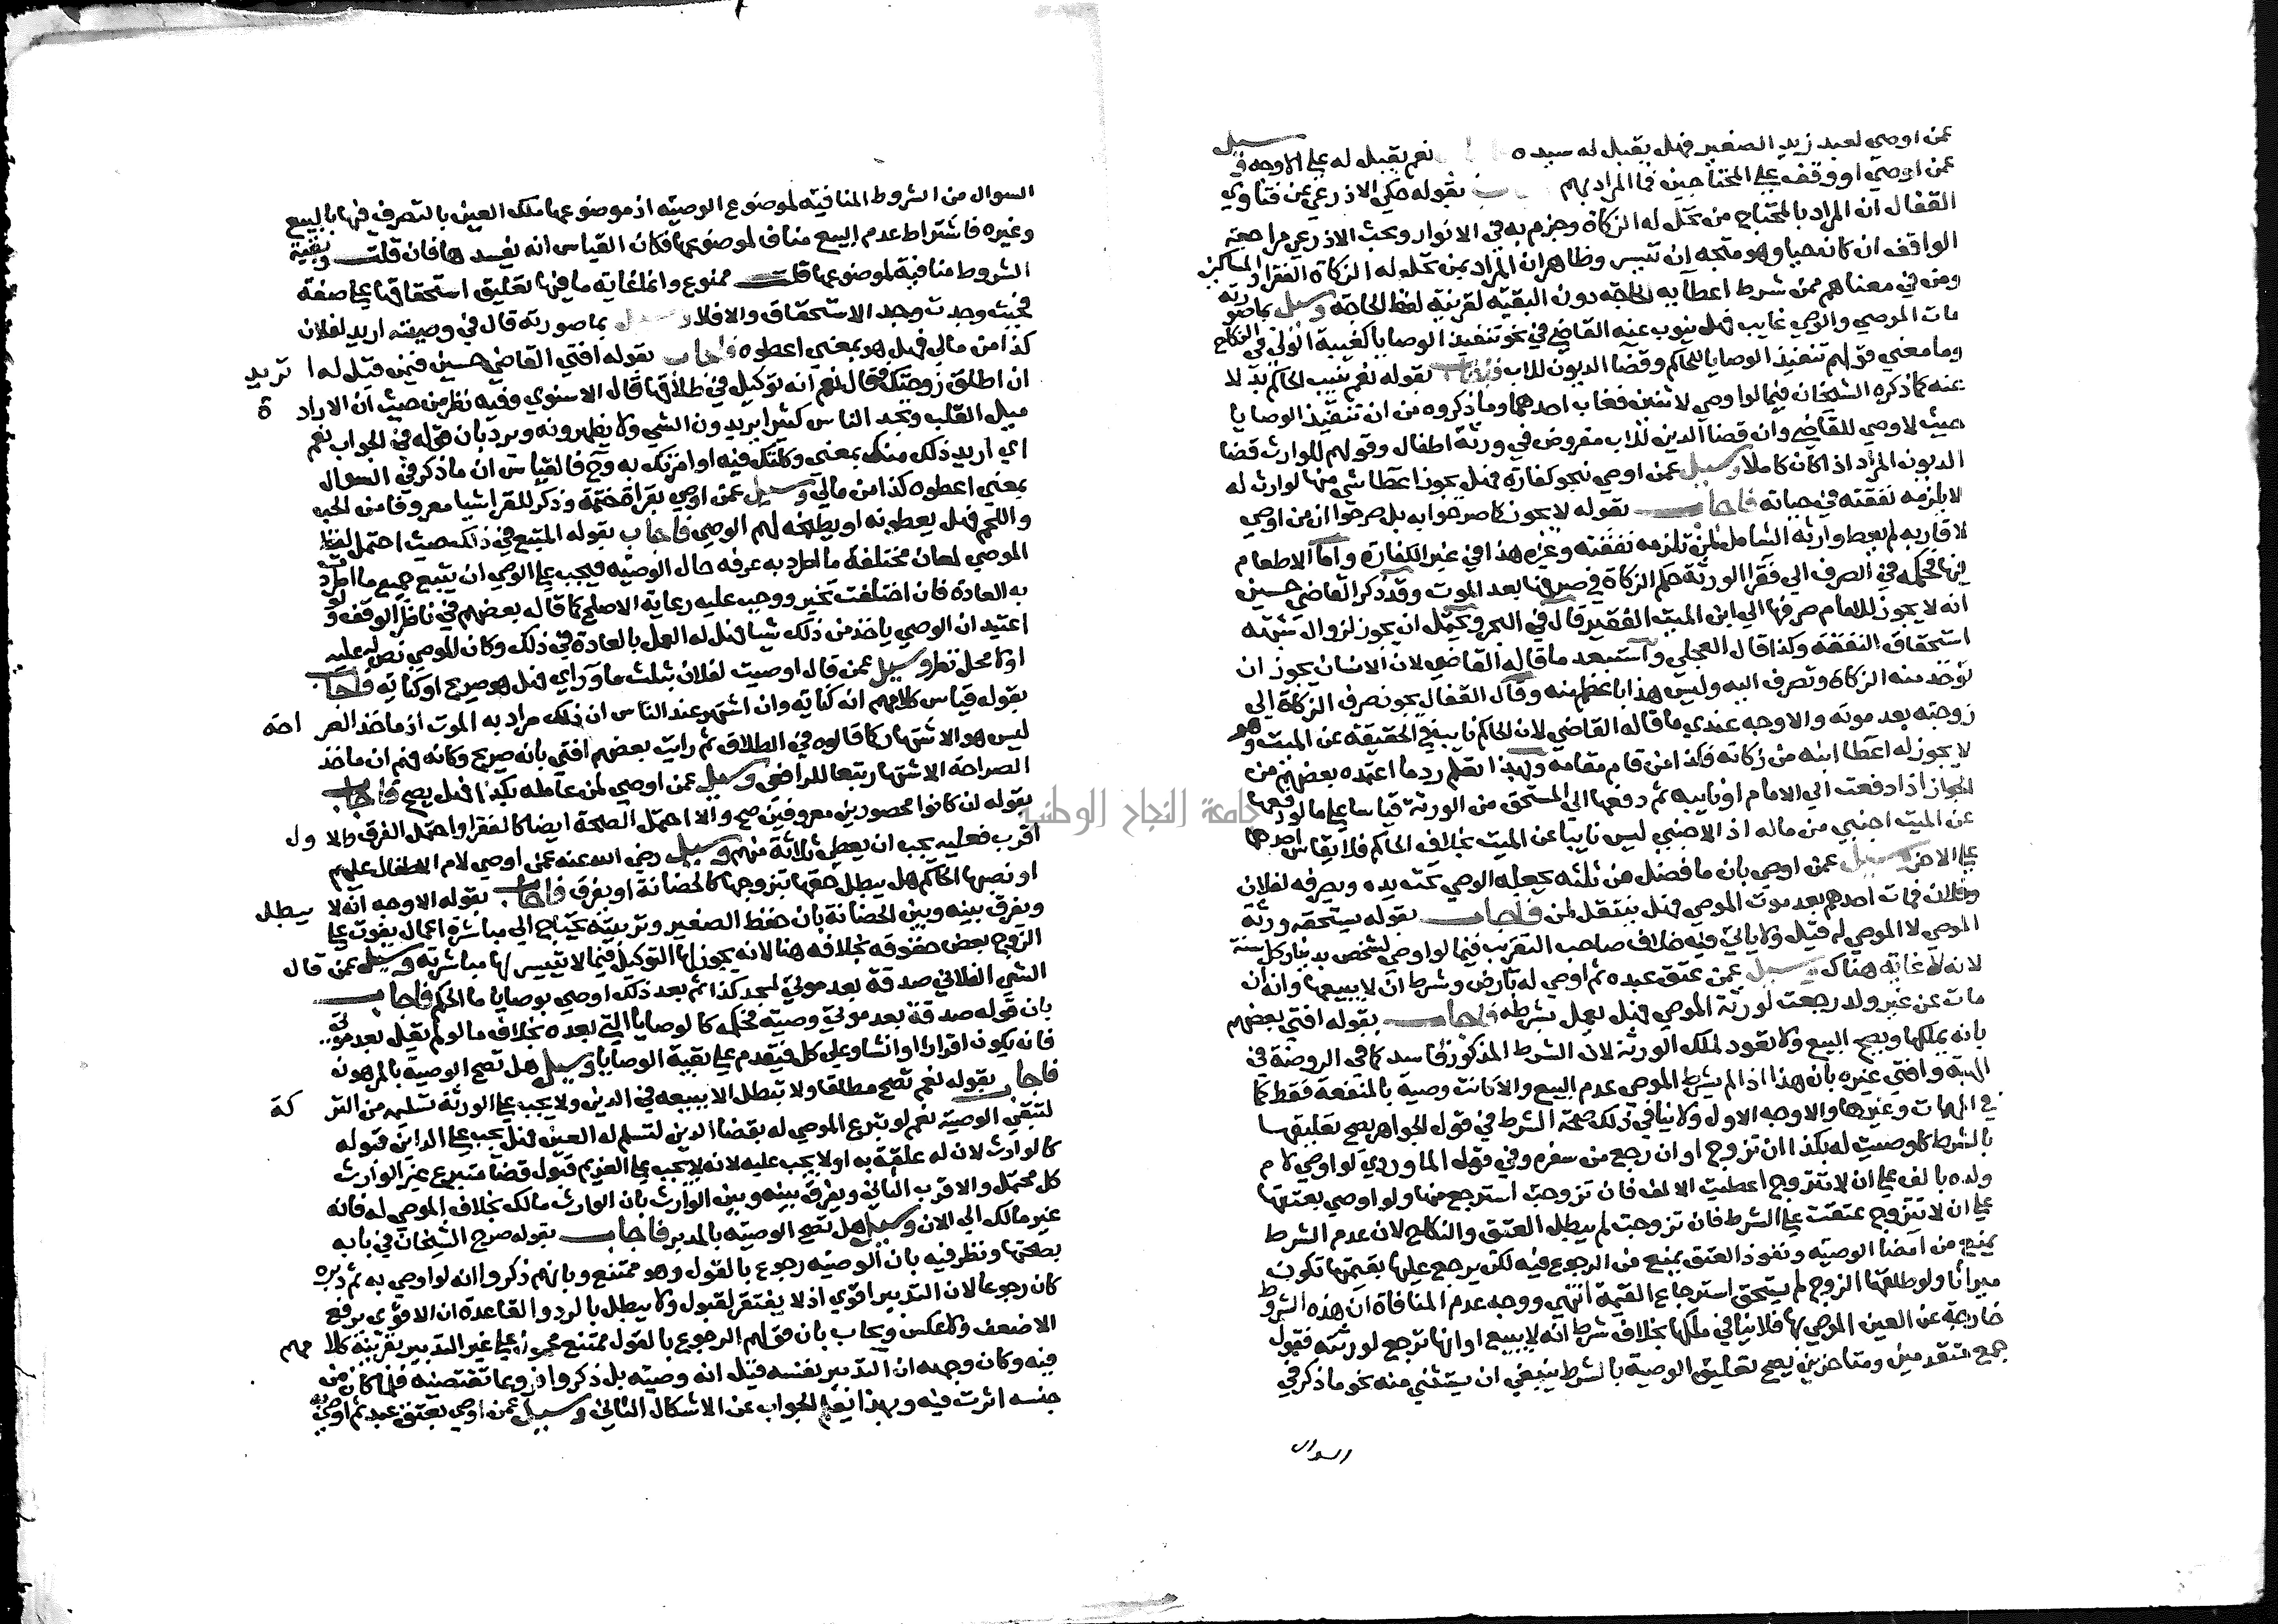 عمن اوصي لعبد زيد الصغير فهل يقبل له سيده نعم يقبل له علي الاوجه وسيل
عمن اوصي او وقف علي المحتاجين فما المراد بهم بقوله حكي الاذرعي عن فتاوي
القفال ان المراد بالمحتاج من تحل له الزكاة وجزم به في الانوار وبحث الاذرعي مراجعة
الواقف ان كان حيا وهو متجه ان تيسر وظاهر ان المراد بمن تحل له الزكاة الفقراء والمساكين
ومن في معناهم ممن شرط اعطآيه الحاجة دون البقية لقرينة لفظ الحاجة وسيل بما صورته
مات الموصي والوصي غايب فهل ينوب عنه القاضي في نحو تنفيذ الوصايا كغيبة الولي في النكاح
وما معني قولهم تنفيذ الوصايا للحاكم وقضآ الديون للاب فاجاب بقوله نعم ينيب الحاكم بدلا
عنه كما ذكره الشيخان فيما لو اوصي لاثنين فغاب احدهما وما ذكروه من ان تنفيذ الوصايا
حيث لا وصي للقاضي وان قضآ الدين للاب مفروض في ورثة اطفال وقولهم للوارث قضا
الديون المراد اذا كان كاملا وسيل عمن اوصي بنحو كفارة فهل يجوز اعطآ شي منها لوارث له
لا يلزمه نفقته في حياته فاجاب بقوله لا يجوز كما صرحوا به بل صرحوا ان من اوصي
لاقاربه لم يعط وارثه الشامل لمن تلزمه نفقته وغيره هذا في غير الكفارة واما الاطعام
فيها فحكمه في الصرف الي فقرا الورثة حكم الزكاة في صرفها بعد الموت وقد ذكر القاضي حسين
انه لا يجوز للامام صرفها الي ابن الميت الفقير قال في البحر ويحتمل ان يجوز لزوال شبهة
استحقاق النفقة وكذا قال العجلي واستبعد ما قاله القاضي لان الانسان يجوز ان
تؤخذ منه الزكاة وتصرف اليه وليس هذا باعظم منه وقال القفال يجوز صرف الزكاة الي
زوجته بعد موته والاوجه عندي ما قاله القاضي لان الحاكم نايب في الحقيقة عن الميت وهو
لا يجوز له اعطا ابنه من زكاته فكذا من قام مقامه وبهذا تعلم رد ما اعتمده بعضهم من
الجواز اذا دفعت الي الامام او نايبه ثم دفعها الي المستحق من الورثة قياسا علي ما لو دفعها
عن الميت اجنبي من ماله اذ الاجنبي ليس نايبا عن الميت بخلاف الحاكم فلا يقاس احدهما
علي الاخر وسيل عمن اوصي بان ما فضل من ثلثه يجعله الوصي تحت يده ويصرفه لفلان
وفلان فمات احدهم بعد موت الموصي فهل ينتقل لمن فاجاب بقوله يستحقه ورثة
الموصي لا الموصي له قبل ولا ياتي فيه خلاف صاحب التقريب فيما لو اوصي لشخص بدينار كل سنة
لانه لا غاية هناك وسيل عمن عتق عبده ثم اوصي له بارض وشرط ان لا يبيعها وانه ان
مات عن غير ولد رجعت لورثة الموصي فهل يعمل بشرطه فاجاب بقوله افتي بعضهم
بانه يملكها ويصح البيع ولا يقود لملك الورثة لان الشرط المذكور فاسد كما في الروضة في
الهبة وافتي غيره بان هذا اذا لم يشرط الموصي عدم البيع والا كانت وصية بالمنفعة فقط كما
في المهمات وغيرها والاوجه الاول ولا ينافي ذلك صحة الشرط في قول الجواهر يصح تعليقها
بالشرط كاوصيت له بكذا ان تزوج او ان رجع من سفره وفي قول الماوردي لو اوصي لام
ولده بالف علي ان لا تتزوج اعطيت الالف فان تزوجت استرجع منها ولو اوصي بعتقها
علي ان لا تتزوج عتقت علي الشرط فان تزوجت لم يبطل العتق والنكاح لان عدم الشرط
يمنع من امضا الوصية ونفوذ العتق يمنع من الرجوع فيه لكن يرجع عليها بقيمتها تكون
ميراثا ولو طلقها الزوج لم يستحق استرجاع القيمة انتهي ووجه عدم المنافاة ان هذه الشروط
خارجة عن العين الموصي بها فلا ينافي ملكها بخلاف شرط انه لا يبيع او انها ترجع لورثته فقول
جمع متقدمين ومتاخرين يصح تعليق الوصية بالشرط ينبغي ان يستثني منه نحو ما ذكر في
السوال
السوال من الشروط المنافية لموضوع الوصية اذ موضوعها ملك العين بالتصرف فيها بالبيع
وغيره فاشتراط عدم البيع مناف لموضوعها فكان القياس انه يفسدها فان قلت وبقية
الشروط منافية لموضوعها قلت ممنوع وانما غاية ما فيها تعليق استحقاقها علي صفة
فحيث وجدت وجد الاستحقاق والا فلا وسيل بما صورته قال في وصيته اريد لفلان
كذا من مالي فهل هو بمعني اعطوه فاجاب بقوله افتي القاضي حسين فيمن قيل له اتريد
ان اطلق زوجتك فقال نعم انه توكيل في طلاقها قال الاسنوي وفيه نظر من حيث ان الارادة
ميل القلب ونجد الناس كثيرا يريدون الشي ولا يظهرونه ويرد بان قوله في الجواب نعم
اي اريد ذلك منك بمعني وكلتك فيه او امرتك به وح فالقياس ان ما ذكر في السوال
بمعني اعطوه كذا من مالي وسيل عمن اوصي بقراة ختمة وذكر للقرا شيا معروفا من الخبز
واللحم فهل يعطونه او يطبخه لهم الوصي فاجاب بقوله المتبع في ذلك حيث احتمل لفظ
الموصي لمعان مختلفة ما اطرد به عرفه حال الوصية فيجب علي الوصي ان يتبع جميع ما اطردت
به العادة فان اختلفت تخير ووجب عليه رعاية الاصلح كما قاله بعضهم في ناظر الوقف ولو
اعتيد ان الوصي ياخذ من ذلك شيا فهل له العمل بالعادة في ذلك وكان الموصي نص له عليه
او لا محل نظر وسيل عمن قال اوصيت لفلان بثلث ما ورآي فهل هو صريح او كناية فاجاب
بقوله قياس كلامهم انه كناية وان اشتهر عند الناس ان ذلك مراد به الموت اذ ماخذ الصراحة
ليس هو الاشتهار كما قالوه في الطلاق ثم رايت بعضهم افتي بانه صريح وكانه فهم ان ماخذ
الصراحة الاشتهار تبعا للرافعي وسيل عمن اوصي لمن عامله بكذا فهل يصح فاجاب
بقوله ان كانوا محصورين معروفين صح والا احتمل الصحة ايضا كالفقرا واحتمل الفرق والاول
اقرب فعليه يجب ان يعطي ثلاثة منهم وسيل رضي الله عنه عمن اوصي لام الاطفال عليهم
او نصبها الحاكم هل يبطل حقها بتزوجها كالحضانة او يفرق فاجاب بقوله الاوجه انه لا يبطل
ويفرق بينه وبين الحضانة بان حفظ الصغير وتربيته يحتاج الي مباشرة اعمال يفوت علي
الزوج بعض حقوقه بخلافه هنا لانه يجوز لها التوكيل فيما لا تتيسر لها مباشرته وسيل عمن قال
الشي الفلاني صدقة بعد موتي لمسجد كذا ثم بعد ذلك اوصي بوصايا ما الحكم فاجاب
بان قوله صدقة بعد موتي وصية فحكمه كالوصايا التي بعده بخلاف ما لو لم يقل بعد موتي
فانه يكون اقرارا او انشا وعلي كل فيقدم علي بقية الوصايا وسيل هل تصح الوصية بالمرهون
فاجاب بقوله نعم تصح مطلقا ولا تبطل الا ببيعه في الدين ولا يجب علي الورثة تسليمه من التركة
لتبقي الوصية نعم لو تبرع الموصي له بقضا الدين لتسلم له العين فهل يجب علي الداين قبوله
كالوارث لان له علقة به او لا يجب عليه لانه لا يجب علي الغريم قبول قضا متبرع غير الوارث
كل محتمل والاقرب الثاني ويفرق بينه وبين الوارث بان الوارث مالك بخلاف الموصي له فانه
غير مالك الي الان وسيل هل تصح الوصية بالمدبر فاجاب بقوله صرح الشيخان في بابه
بصحتها ونظر فيه بان الوصية رجوع بالقول وهو ممتنع وبانهم ذكروا انه لو اوصي به ثم دبره
كان رجوعا لان التدبير اقوي اذ لا يفتقر لقبول ولا يبطل بالرد والقاعدة ان الاقوي يرفع
الاضعف ولا عكس ويجاب بان قولهم الرجوع بالقول ممتنع محمول علي غير التدبير بقرينة كلامهم
فيه وكان وجهه ان التدبير نفسه قيل انه وصية بل ذكروا فروعا تقتضيه فلما كان من
جنسه اثرت فيه وبهذا يعلم الجواب عن الاشكال الثاني وسيل عمن اوصي بعتق عبد ثم اوصي به
جامعة النجاح الوطنية